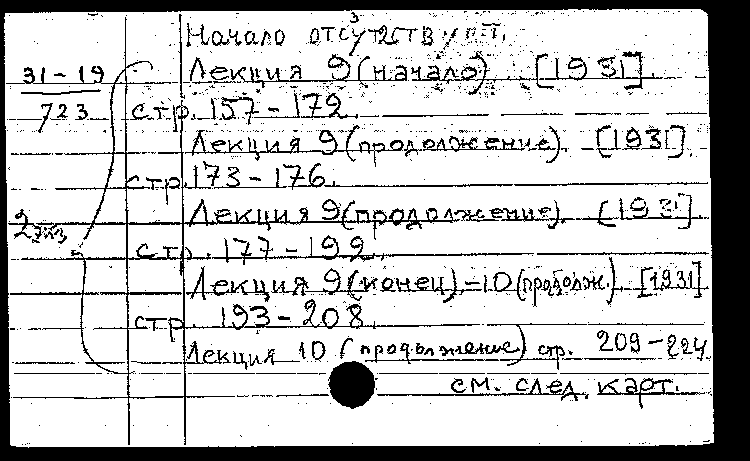 Начало отсутствует.
31-19 Лекция 9 (начало). [1931].
723 стр. 157-172.
Лекция 9 (продолжение). [1931].
стр. 173-176.
2 экз. Лекция 9 (продолжение). [1931]
стр. 177-192.
Лекция 9 (конец)-10 (продолж.). [1931]
стр. 193-208.
Лекция 10 (продолжение) стр. 209-224
см. след. карт.